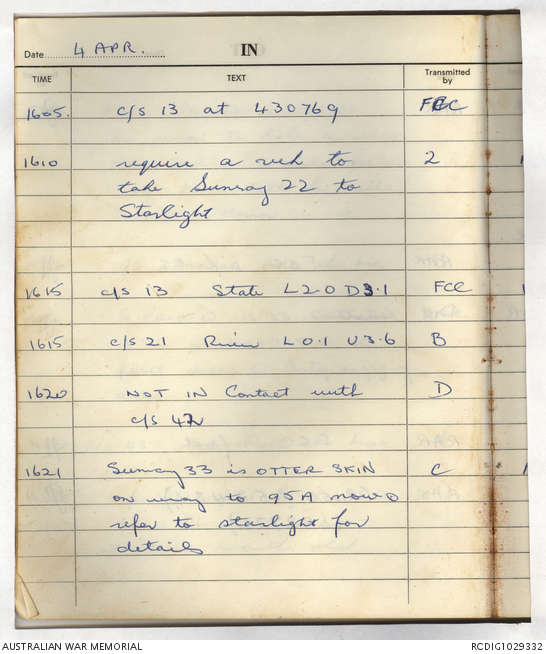 Date 4 APR. IN
TIME TEXT Transmitted by
1605. c/s 13 at 430769 FCC
1610 require a veh to 2
take Sunray 22 to
Starlight
1615 c/s 13 State L2.0 D3.1 FCC
1615 c/s 21 L0.1 U3.6 B
1620 NOT IN Contact with D
c/s 42
1621 Sunray 33 is OTTER SKIN C
on way to 95A now
refer to starlight for
details
AUSTRALIAN WAR MEMORIAL RCDIG1029332